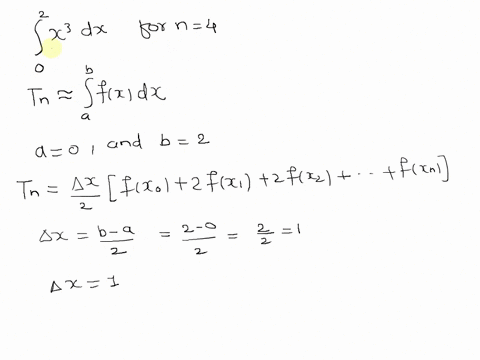 ∫₀² x³ dx for n=4
Tn ≈ ∫ₐᵇ f(x) dx
a=0, and b=2
Tn = Δx/2 [f(x₀)+2f(x₁)+2f(x₂)+⋯+f(xn)]
Δx = b−a/2 = 2−0/2 = 2/2 = 1
Δx = 1